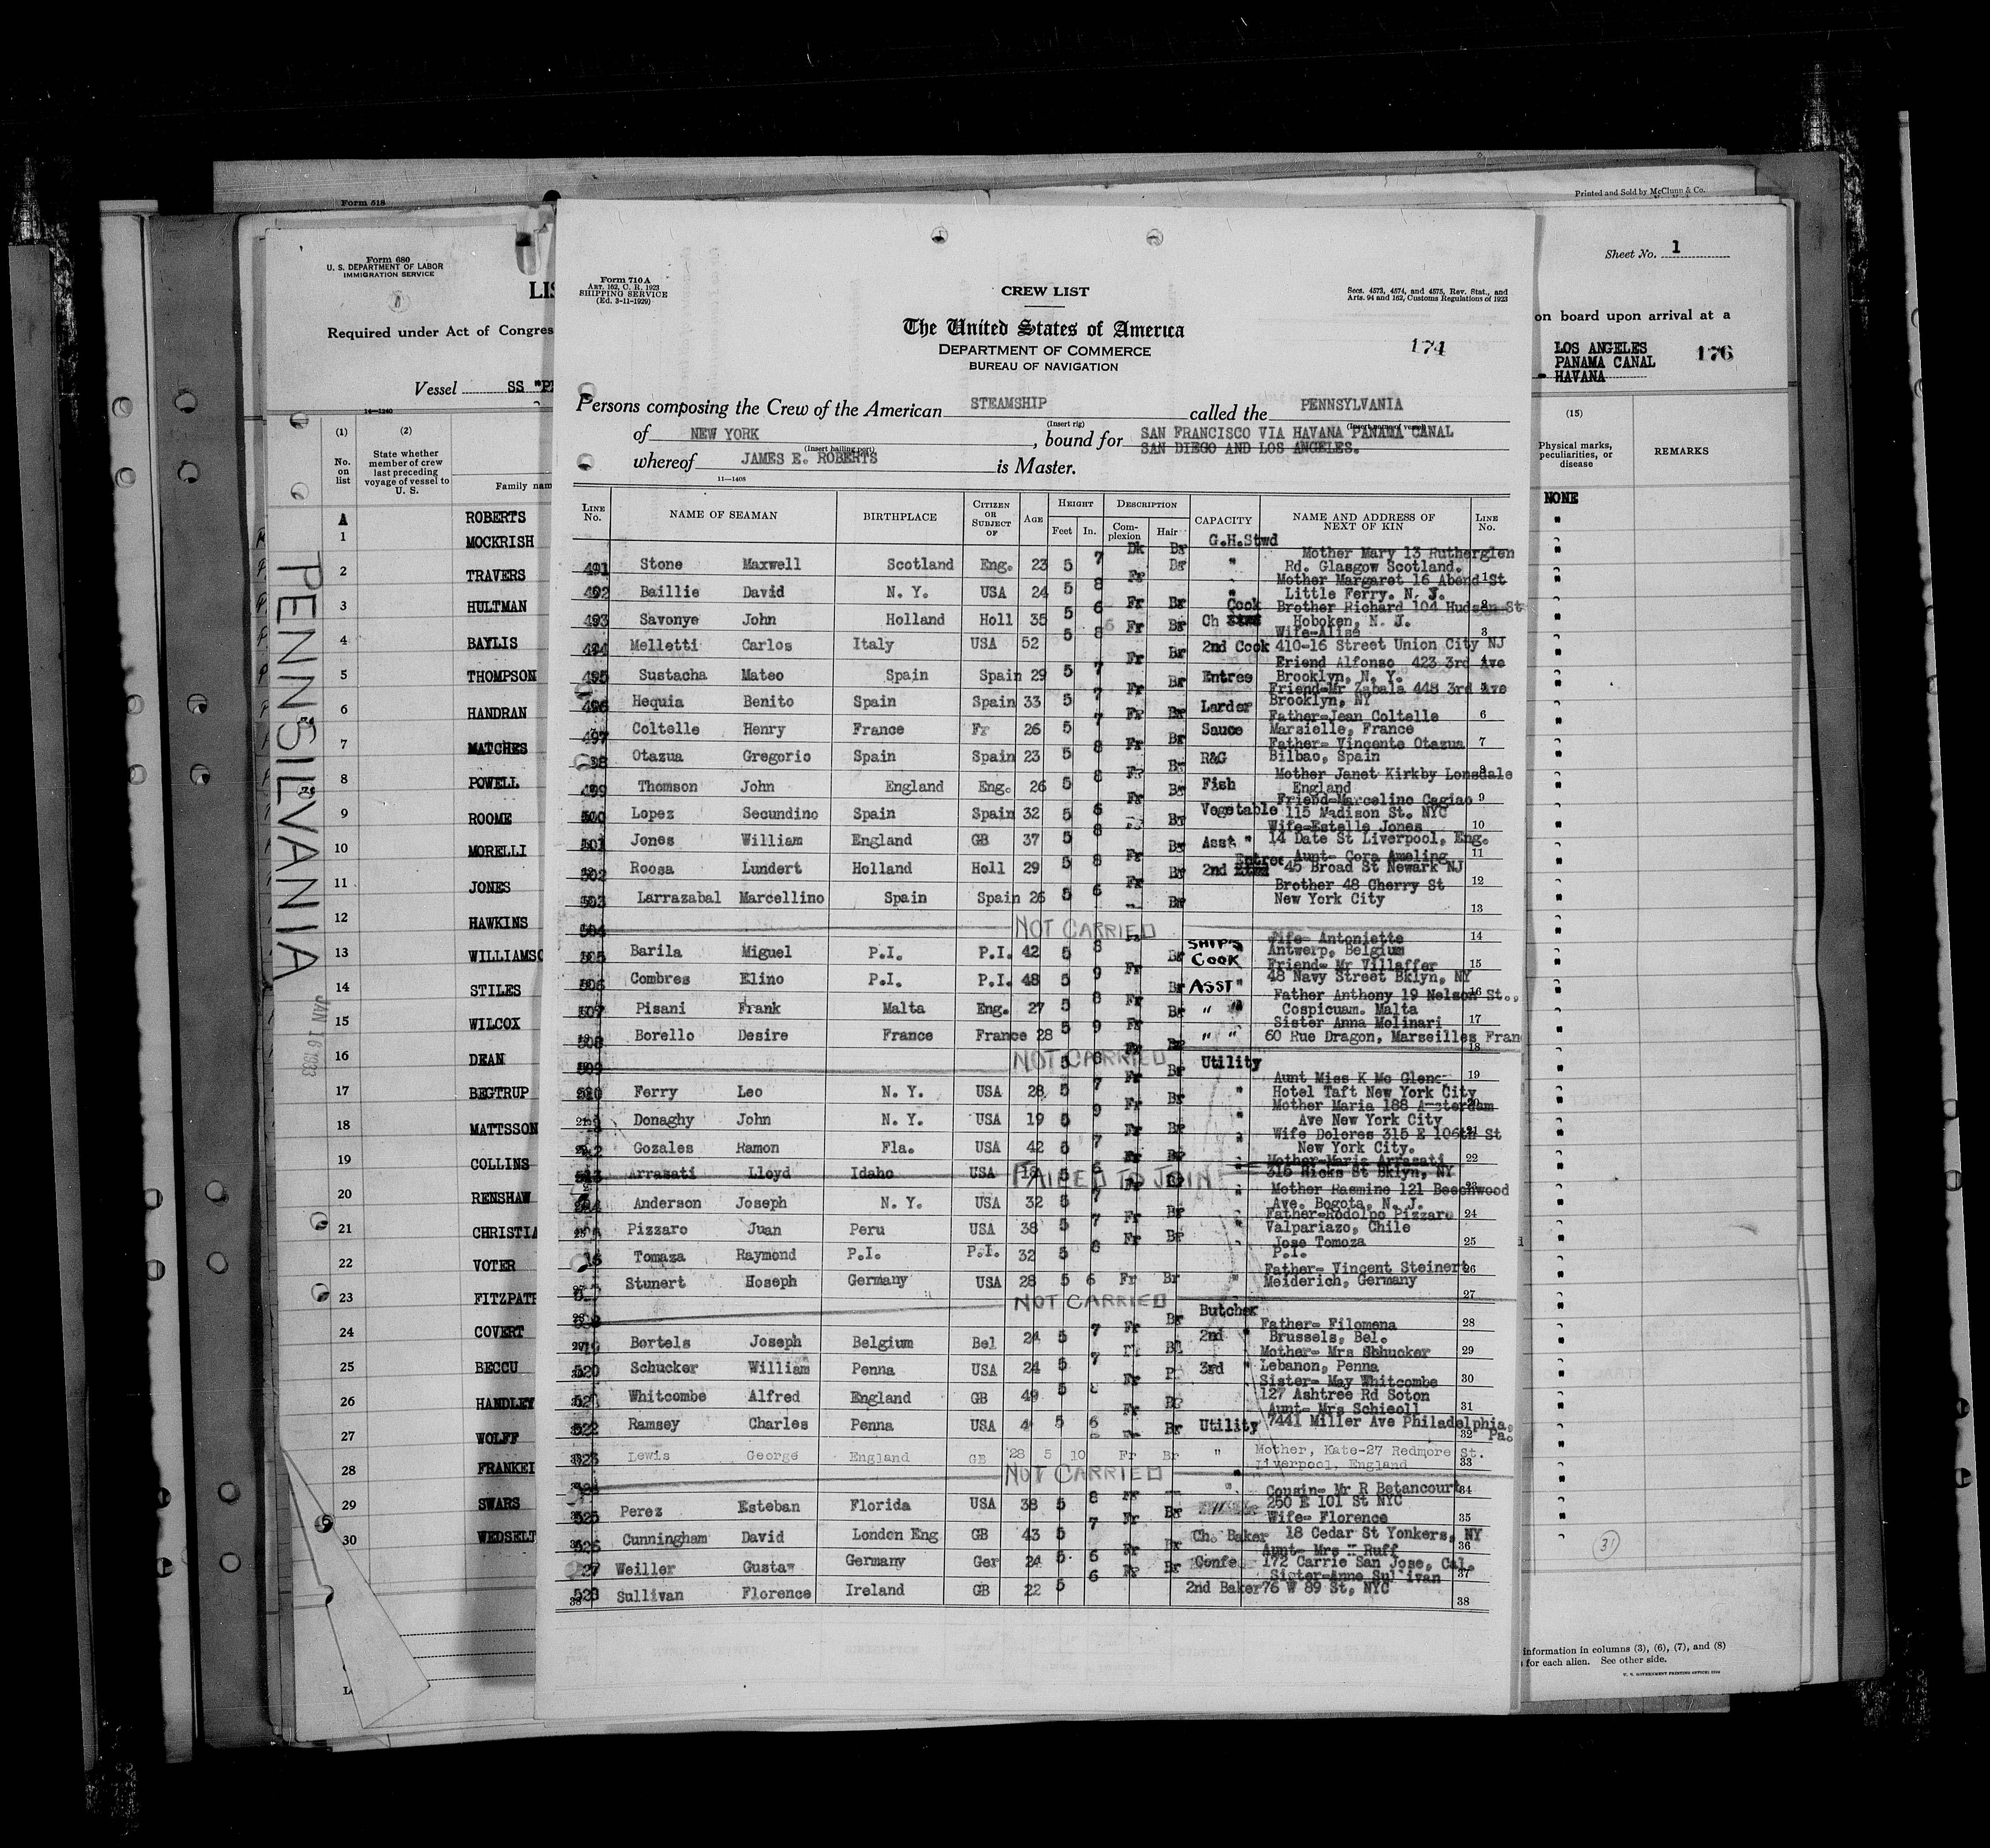 Form 518
Printed and Sold by McClunn & Co.
Form 680
U. S. DEPARTMENT OF LABOR
IMMIGRATION SERVICE
LIS
Required under Act of Congres
Vessel SS "PE
14—1240
(1) (2)
No. on list
State whether member of crew last preceding voyage of vessel to U. S.
Family nam
A ROBERTS
1 MOCKRISH
2 TRAVERS
3 HULTMAN
4 BAYLIS
5 THOMPSON
6 HANDRAN
7 MATCHES
8 POWELL
9 ROOME
10 MORELLI
11 JONES
12 HAWKINS
13 WILLIAMSO
14 STILES
15 WILCOX
16 DEAN
17 BEGTRUP
18 MATTSSON
19 COLLINS
20 RENSHAW
21 CHRISTIA
22 VOTER
23 FITZPATR
24 COVERT
25 BECCU
26 HANDLEY
27 WOLFF
28 FRANKEL
29 SWARS
30 WEDSELT
PENNSILVANIA
JAN 16 1933
Form 710A
ART. 162, C. R. 1923
SHIPPING SERVICE
(Ed. 3-11-1929)
CREW LIST
Secs. 4573, 4574, and 4575, Rev. Stat., and
Arts. 94 and 162, Customs Regulations of 1923
The United States of America
DEPARTMENT OF COMMERCE
BUREAU OF NAVIGATION
174
Persons composing the Crew of the American STEAMSHIP called the PENNSYLVANIA
(Insert rig) (Insert name of vessel)
of NEW YORK, bound for SAN FRANCISCO VIA HAVANA PANAMA CANAL
(Insert hailing port) SAN DIEGO AND LOS ANGELES.
whereof JAMES E. ROBERTS is Master.
11—1408
LINE No. NAME OF SEAMAN BIRTHPLACE CITIZEN OR SUBJECT OF AGE HEIGHT Feet In. DESCRIPTION Complexion Hair CAPACITY NAME AND ADDRESS OF NEXT OF KIN LINE No.
G.H.Stwd
491 Stone Maxwell Scotland Eng. 23 5 7 Dk Br " Mother Mary 13 Rutherglen Rd. Glasgow Scotland. 1
492 Baillie David N. Y. USA 24 5 8 Fr Br " Mother Margaret 16 Abend St Little Ferry. N. J. 2
493 Savonye John Holland Holl 35 5 6 Fr Br Ch Cook Brother Richard 104 Hudson St Hoboken, N. J. 3
494 Melletti Carlos Italy USA 52 5 8 Fr Br 2nd Cook Wife-Alise 410-16 Street Union City NJ
495 Sustacha Mateo Spain Spain 29 5 7 Fr Br Entree Friend Alfonso 423 3rd Ave Brooklyn, N. Y.
496 Hequia Benito Spain Spain 33 5 7 Fr Br Larder Friend-Mr Zabala 448 3rd Ave Brooklyn, NY 6
497 Coltelle Henry France Fr 26 5 7 Fr Br Sauce Father-Jean Coltelle Marsielle, France 7
98 Otazua Gregorio Spain Spain 23 5 8 Fr Br R&G Father- Vincente Otazua Bilbao, Spain
499 Thomson John England Eng. 26 5 8 Fr Br Fish Mother Janet Kirkby Lonsdale England 9
500 Lopez Secundino Spain Spain 32 5 6 Fr Br Vegetable Friend-Marcelino Cagiao 115 Madison St. NYC 10
501 Jones William England GB 37 5 8 Fr Br Asst " Wife-Estelle Jones 14 Date St Liverpool, Eng. 11
502 Roosa Lundert Holland Holl 29 5 8 Fr Br 2nd Entree Aunt- Cora Ameling 45 Broad St Newark NJ 12
503 Larrazabal Marcellino Spain Spain 26 5 6 Br Brother 48 Cherry St New York City 13
504 NOT CARRIED 14
505 Barila Miguel P.I. P.I. 42 5 8 Br SHIP'S COOK Wife- Antoniette Antwerp, Belgium 15
506 Combres Elino P.I. P.I. 48 5 9 Fr Br ASST " Friend- Mr Villaffer 48 Navy Street Bklyn, NY 16
507 Pisani Frank Malta Eng. 27 5 8 Fr Br " " Father Anthony 19 Nelson St., Cospicuam. Malta 17
508 Borello Desire France France 28 5 9 Fr Br " " Sister Anna Molinari 60 Rue Dragon, Marseilles Fran 18
509 NOT CARRIED Utility 19
510 Ferry Leo N. Y. USA 28 5 7 Fr Br " Aunt Miss K Mc Glenc Hotel Taft New York City
Donaghy John N. Y. USA 19 5 9 Fr Br " Mother Maria 188 Amsterdam Ave New York City 21
Gozales Ramon Fla. USA 42 5 7 Fr Br " Wife Dolores 315 E 106th St New York City. 22
513 Arrasati Lloyd Idaho USA 19 5 6 FAILED TO JOIN Mother-Marie Arrasati 316 Hicks St Bklyn, NY 23
Anderson Joseph N. Y. USA 32 5 7 Fr Br " Mother Rasmine 121 Beechwood Ave. Bogota, N. J. 24
Pizzaro Juan Peru USA 38 5 7 Fr Br " Father-Rodolpo Pizzaro Valpariazo, Chile 25
16 Tomaza Raymond P.I. P.I. 32 5 8 Jose Tomoza P.I. 26
Stunert Hoseph Germany USA 28 5 6 Fr Br " Father- Vincent Steinert Meiderich, Germany 27
NOT CARRIED Butcher 28
Bortels Joseph Belgium Bel 24 5 7 Fr Br 2nd " Father- Filomena Brussels, Bel. 29
520 Schucker William Penna USA 24 5 7 3rd " Mother- Mrs Schucker Lebanon, Penna 30
521 Whitcombe Alfred England GB 49 5 Fr Br Sister- May Whitcombe 127 Ashtree Rd Soton 31
522 Ramsey Charles Penna USA 4 5 6 Fr Br Utility Aunt- Mrs Schieoll 7441 Miller Ave Philadelphia, Pa. 32
523 Lewis George England GB 28 5 10 Fr Br " Mother, Kate-27 Redmore St. Liverpool, England 33
NOT CARRIED " 34
525 Perez Esteban Florida USA 38 5 8 Fr Br " Cousin- Mr R Betancourt 250 E 101 St NYC 35
526 Cunningham David London Eng GB 43 5 7 Fr Br Ch. Baker Wife- Florence 18 Cedar St Yonkers, NY 36
27 Weiller Gustaw Germany Ger 24 5 6 Fr Br Confe Aunt- Mrs Ruff 172 Carrie San Jose, Cal. 37
528 Sullivan Florence Ireland GB 22 5 6 2nd Baker Sister-Anne Sullivan 76 W 89 St, NYC 38
Sheet No. 1
on board upon arrival at a
LOS ANGELES
PANAMA CANAL
HAVANA
176
(15)
Physical marks, peculiarities, or disease
REMARKS
NONE
31
information in columns (3), (6), (7), and (8)
for each alien. See other side.
U. S. GOVERNMENT PRINTING OFFICE